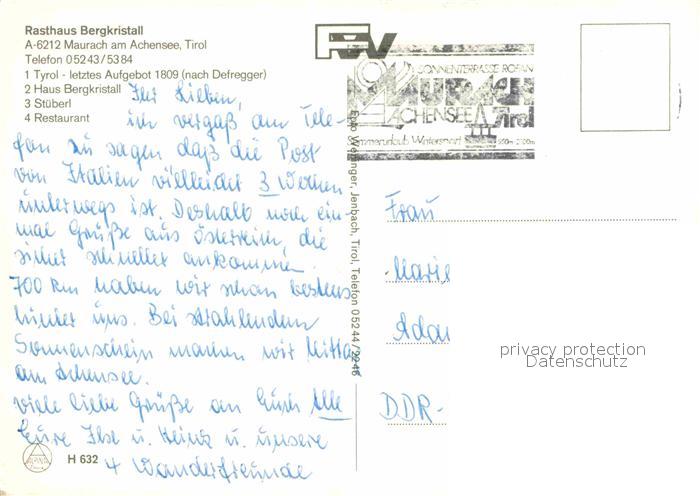 Rasthaus Bergkristall
A-6212 Maurach am Achensee, Tirol
Telefon 05243/5384
1 Tyrol - letztes Aufgebot 1809 (nach Defregger)
2 Haus Bergkristall
3 Stüberl
4 Restaurant
Ihr Lieben,
ich vergaß am Tele-
fon zu sagen daß die Post
von Italien vielleicht 3 Wochen
unterwegs ist. Deshalb noch ein-
mal Grüße aus Österreich, die
sicher schneller ankommen.
700 km haben wir schon bestens
hinter uns. Bei strahlendem
Sonnenschein machen wir Mittag
am Achensee.
Viele liebe Grüße an Euch Alle
Eure Ilse u. Heinz u. unsere
4 Wanderfreunde
H 632
Jenbach, Tirol, Telefon 05244/2246
SONNENTERRASSE ROFAN
MAURACH
ACHENSEE Tirol
Sommerurlaub Wintersport
Frau
Marie
Adam
DDR-
privacy protection
Datenschutz